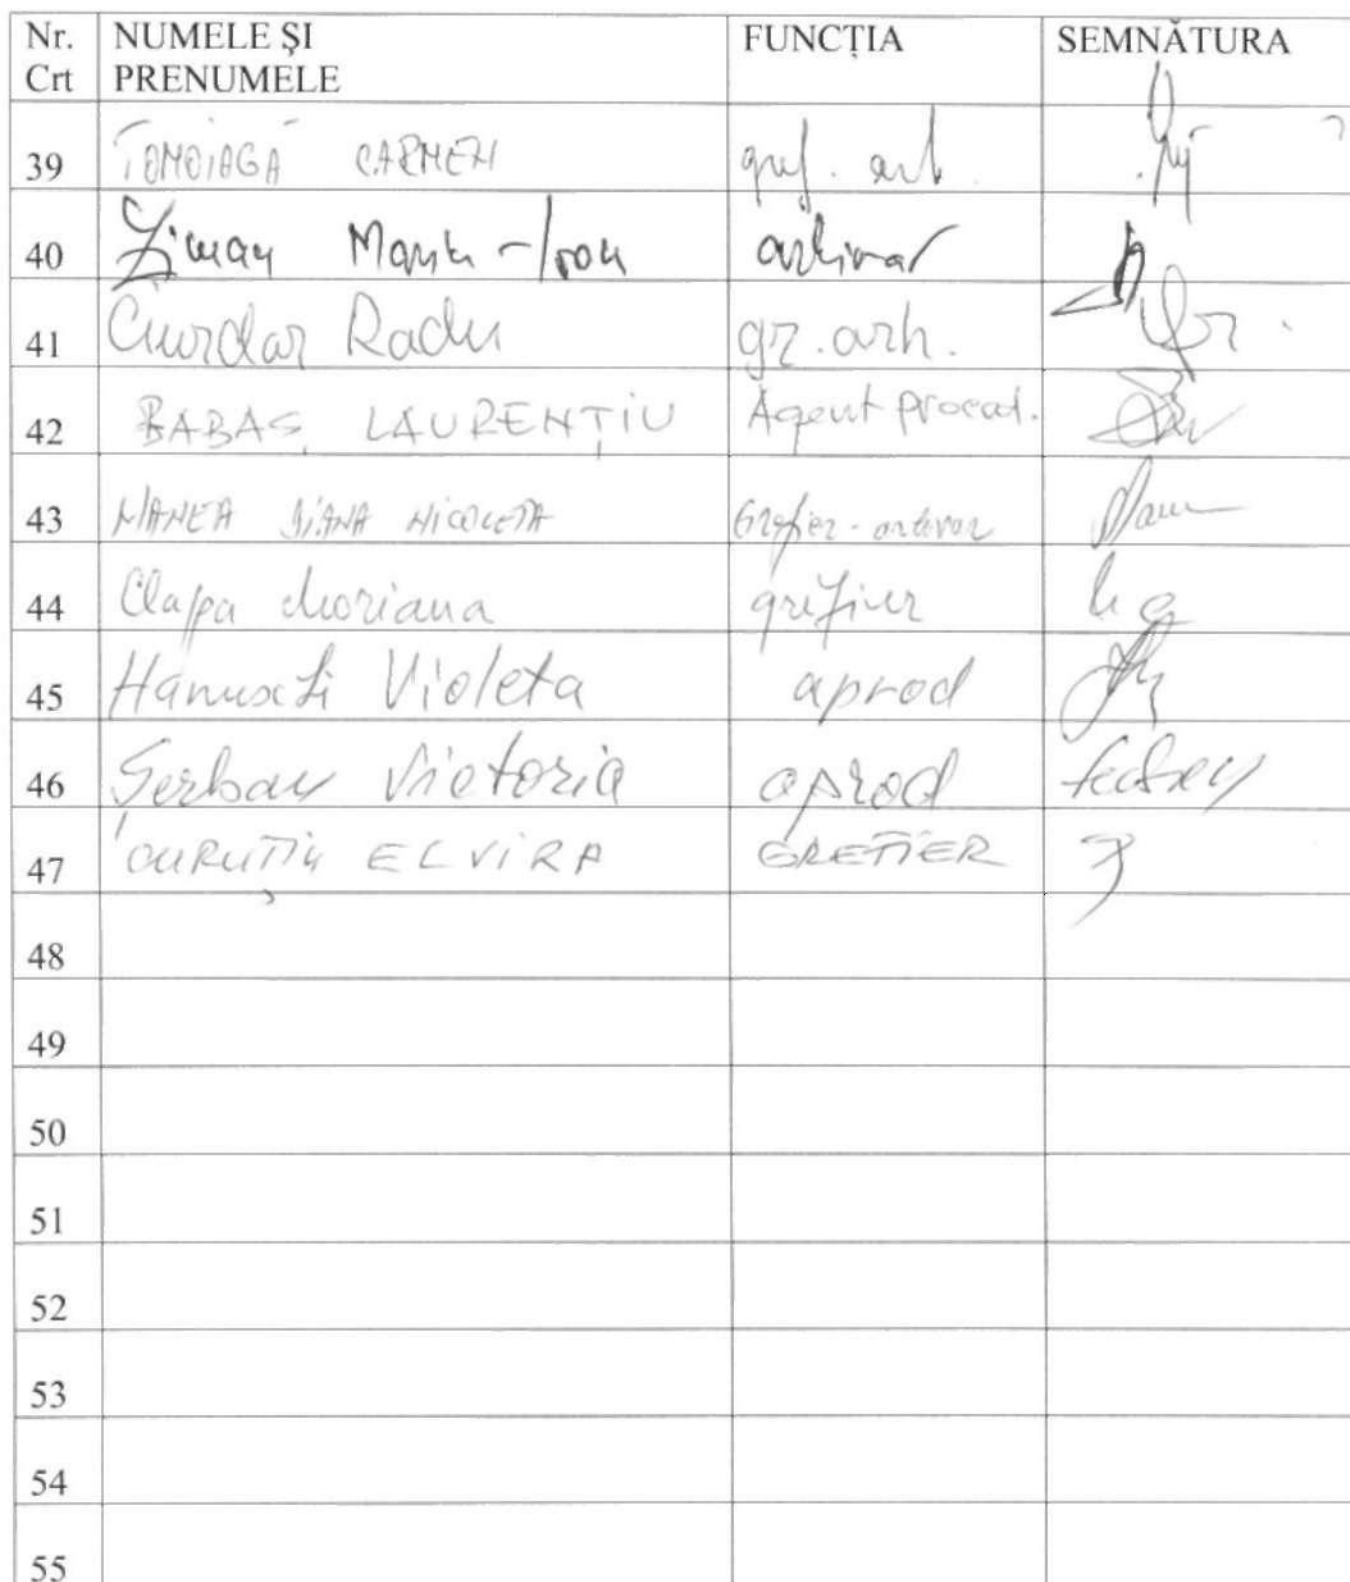 Nr. Crt NUMELE ȘI PRENUMELE FUNCȚIA SEMNĂTURA
39 TOMOIAGĂ CARMEN gref. arh.
40 Ziman Marin-Ioan arhivar
41 Ciurdar Radu gr. arh.
42 BABAȘ LAURENȚIU Agent proced.
43 MANEA DIANA NICOLETA Grefier-arhivar
44 Clapa Mariana grefier
45 Violeta aprod
46 Șerban Victoria aprod
47 ELVIRA GREFIER
48
49
50
51
52
53
54
55